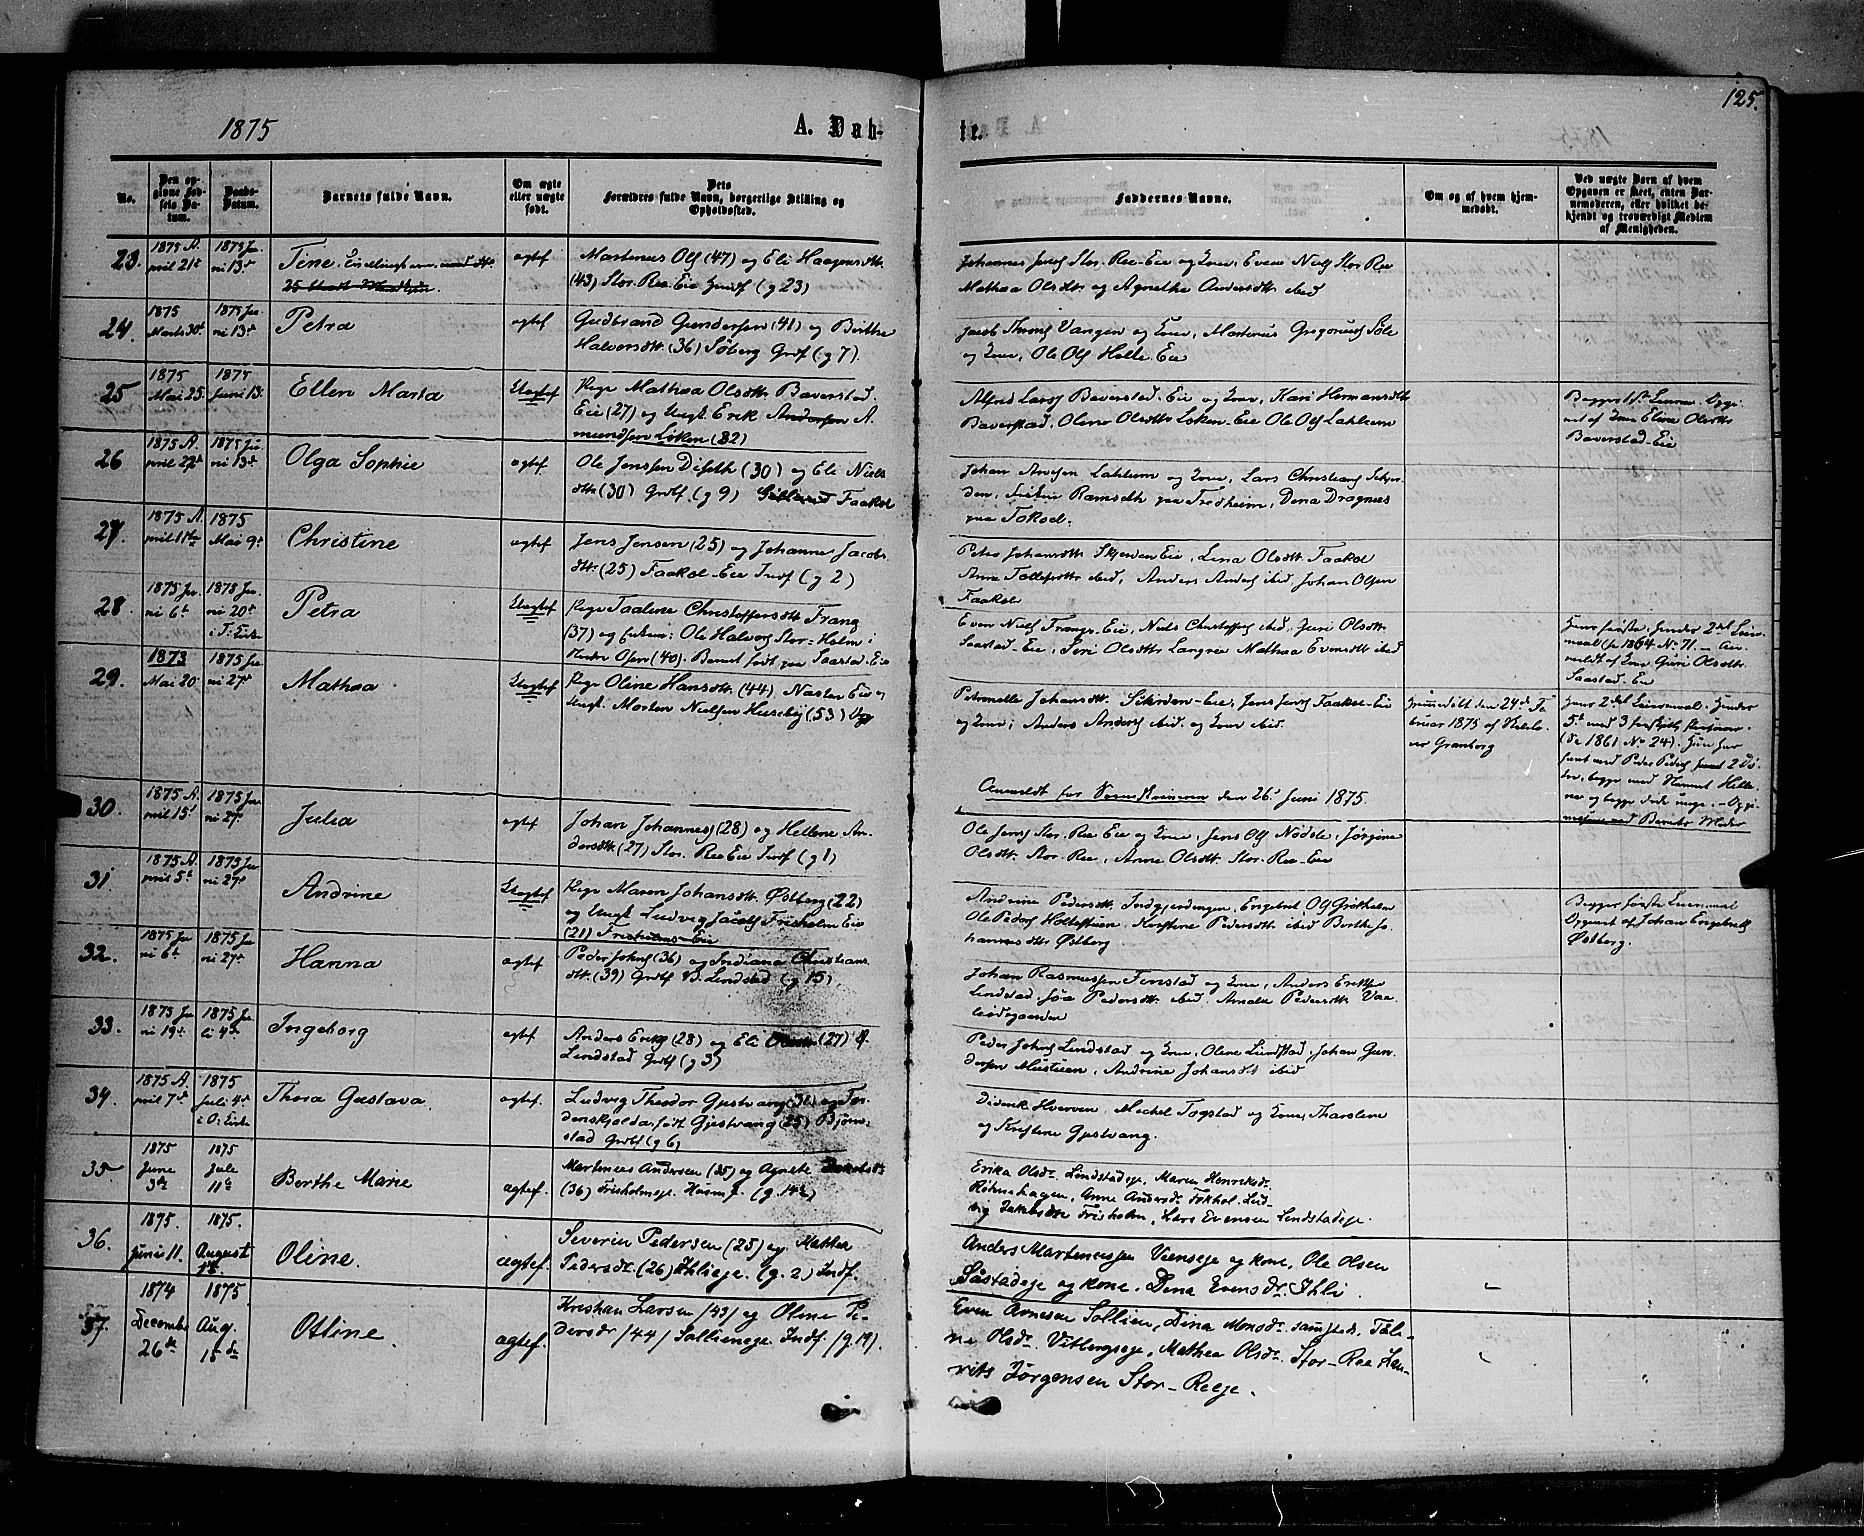 125.
1875
A. Daab-
te.
No.
Den opgivne Fødsels Datum.
Daabs-Datum.
Barnets fulde Navn.
Om ægte eller uægte født.
Dets Forældres fulde Navn, borgerlige Stilling og Opholdssted.
Faddernes Navne.
Om og af hvem hjemmedøbt.
Ved uægte Barn af hvem Opgaven er skeet, enten Barnemoderen, eller hvilket bekjendt og troværdigt Medlem af Menigheden.
23.
1875 A-
pril 21de
1875 Ju-
ni 13de
Tine
ægtef
Martenus Ols (47) og Eli Haagensdtr.
(43) Stor-Ree-Eie Indf (g 23)
Johannes Jens Stor-Ree-Eie og Kone, Even Niels Stor Ree
Mathea Olsdtr og Agnethe Andersdtr ibid
24.
1875
Marts 30t
1875 Ju-
ni 13de
Petra
ægtef
Gudbrand Gundersen (41) og Berthe
Halversdtr. (36) Søberg Grdf (g 7).
Jacob Thrones Vangen og Kone, Martenus Gregoriues Søle
og Kone, Ole Ols Helle Eie
25
1875
Mai 25.
1875
Juni 13.
Ellen Marta
Uægtef
Pige Mathea Olsdtr Baverstad
Eie (27) og Ungk. Erik Andersen A-
mundsen Løken (32)
Alfred Lars Baverstad-Eie og Kone, Kari Hermansdtr
Baverstad, Oline Olsdtr Løken-Eie Ole Ols Lahlum
Begges 1ste Leierm. Opgi-
vet af Kone Eline Olsdtr
Baverstad-Eie
26
1875 A.
pril 27de
1875 Ju-
ni 13de
Olga Sophie
ægtef
Ole Jenssen Diseth (30) og Eli Niels
dtr (30) Grdbf (g 9) Faakol
Johan Arnesen Lahlum og Kone, Lars Christians Skjer-
den, Ramseth paa Fredheim, Dena Dragnes
paa Fokol.
27.
1875 A.
pril 11te
1875
Mai 9de
Christine
ægtef
Jens Jensen (25) og Johanne Jacobs
dtr. (25) Faakol-Eie Indf (g 2)
Petra Johansdtr Skjerden Eie, Lina Olsdtr Faakol
Anne Tollefsdtr ibid, Anders Anders ibid, Johan Olsen
Faakol
28.
1875 Ju-
ni 6te
1875 Ju-
ni 20de
i T: Kirke
Petra
Uægtef
Pige Taaline Christoffersdtr Frang
(37) og Enkem: Ole Halvors Stor-Holm i
Nedre Osen (40). Barnet født paa Saastad-Eie
Even Niels Frangs-Eie, Niels Christoffers ibid, Guri Olsdtr
Saastad-Eie, Seri Olsdtr Langree Mathea Evensdtr ibid
Hans første, Hendes 2det Leier-
maal (se 1864 No 71. - An-
meldt af Kone Guri Olsdtr.
Saastad-Eie
29.
1873
Mai 20
1875 Ju-
ni 27de
Mathea
Uægtef
Pige Oline Hansdtr (44) Naslen Eie og
Ungk. Morten Nielsen Huseby (53)
Petronelle Johansdtr Skjerden-Eie, Jens Jens Faakol-Eie
og Kone, Anders Anders ibid. og Kone ibid.
Hjemmedøbt den 24de Fe-
bruar 1875 af Kirkesan-
ger Granborg
Hans 2det Leiermaal. Hendes
5te med 3 forskjell. Personer.
(Se 1861 No 24). Hun har
havt med Peder Peders 2 Dø-
tre, begge med Navnet Helle-
ne og begge døde unge. - Opgi-
velsen ved Barnets Moder
Anmeldt for den 26de Juni 1875.
30.
1875 A.
pril 15d
1875 Ju-
ni 27de
Julia
ægtef
Johan Johannes (28) og Hellene An-
dersdtr. (27) Stor-Ree Eie Indf (g 1)
Ole Jens Stor-Ree Eie og Kone, Jens Ols Nødsle, Jørgine
Olsdtr. Stor-Ree, Anne Olsdtr. Stor-Ree-Eie
31
1875 A.
pril 5te
1875 Ju-
ni 27de
Andrine
Uægtef
Pige Maren Johansdtr Østberg (22)
og Ungk Ludvig Jacobs Frisholm Eie
(21) Frisholms-Eie
Andrine Pedersdtr Indgjerdingen, Engebret Ols Grøtholm
Ole Peders Holtstuen, Kirstine Pedersdtr ibid Berthe Jo-
hannesdtr Østberg
Begges første Leiermaal
Opgivet af Johan Engebrets
Østberg.
32.
1875 Ju-
ni 6t
1875 Ju-
ni 27de
Hanna
ægtef
Peder Johns (36) og Indiana Christians
dtr. (39) Grdbf N. Lindstad (g 15)
Johan Rasmussen Finstad og Kone, Anders Eriksen
Lindstad, Pedersdtr ibid. Amalie Pedersdtr Vaa-
lødegaarden
33.
1875 Ju-
ni 19de
1875 Ju-
li 4de
Ingeborg
ægtef
Anders Eriks (28) og Eli Olsdtr (27)
Lindstad Grdbf (g 3)
Peder Johns Lindstad og Kone, Oline Lindstad, Johan Gun-
dersen Mustuen, Andrine Johansdtr ibid
34.
1875 A.
pril 7de
1875
Juli 4de
i O: Kirke
Thora Gustava.
ægtef.
Ludvig Theodor Gjestvang (31) og Tor-
denskjolda født Gjestvang (25) Bjørn-
stad Grdbf (g 6)
Diderik Hverven, Mechel Togstad og Kone, Tharslene
og Kristine Gjestvang.
35.
1875
June
3de
1875
Jule
11te
Berthe Marie
ægtef.
Martenees Andersen (35) og Agnete Jakobsdtr
(36) Frisholmeje. Husmf. (g. 14½)
Erika Olsdr. Lindstadeje, Maren Henriksdr.
Røhnehagen, Anne Andersdr. Fokhol. Lud-
vig Jakobsen Frisholm, Lars Evensen Lindstadeje.
36.
1875.
Juni 11.
1875.
August
1ste
Oline.
ægtef.
Severin Pedersen (25) og Mathea
Pedersdr. (26) Ihlieje. (g. 2) Indf.
Anders Martenussen Veenseje og kone, Ole Olsen
Såstadeje og kone. Dina Evensdr. Ihli.
37.
1874
December
26de
1875
Aug.
15de
Otline.
ægtef.
Kristian Larsen (43) og Oline Pe-
dersdr (44) Sollieneje. Indf. (g. 19).
Even Arnesen Sollien, Dina Monsdr. samsteds, Tale-
ne Olsdr. Vitbergseje, Mathea Olsdr. Stor-Ree Lau-
rits Jørgensen Stor-Reeje.